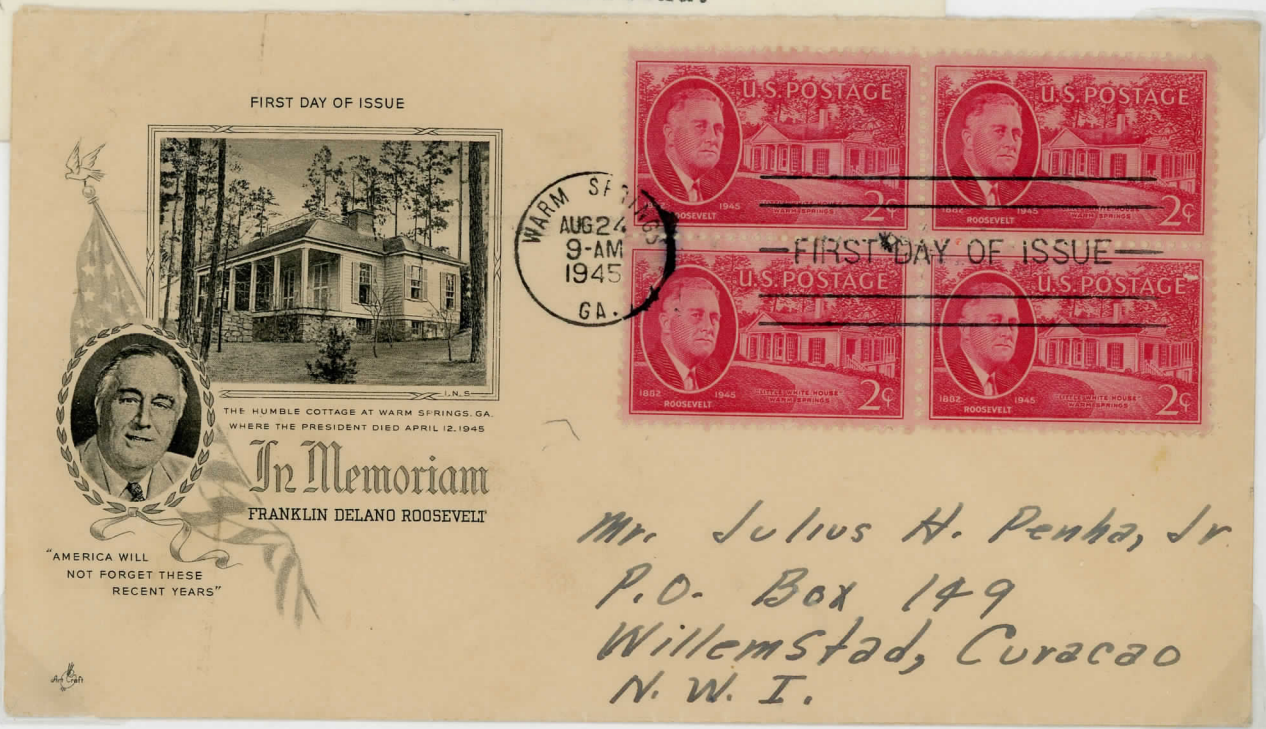 FIRST DAY OF ISSUE
I.N.S
THE HUMBLE COTTAGE AT WARM SPRINGS, GA.
WHERE THE PRESIDENT DIED APRIL 12, 1945
In Memoriam
FRANKLIN DELANO ROOSEVELT
"AMERICA WILL
NOT FORGET THESE
RECENT YEARS"
Art Craft
WARM SPRINGS
AUG 24
9-AM
1945
GA.
U.S. POSTAGE
1882 1945
ROOSEVELT
2¢
U.S. POSTAGE
1882 1945
ROOSEVELT
WARM SPRINGS
2¢
FIRST DAY OF ISSUE
U.S. POSTAGE
1882 1945
ROOSEVELT
"LITTLE WHITE HOUSE"
WARM SPRINGS
2¢
U.S. POSTAGE
1882 1945
ROOSEVELT
"LITTLE WHITE HOUSE"
WARM SPRINGS
2¢
Mr. Julius H. Penha, Jr
P.O. Box 149
Willemstad, Curacao
N. W. I.